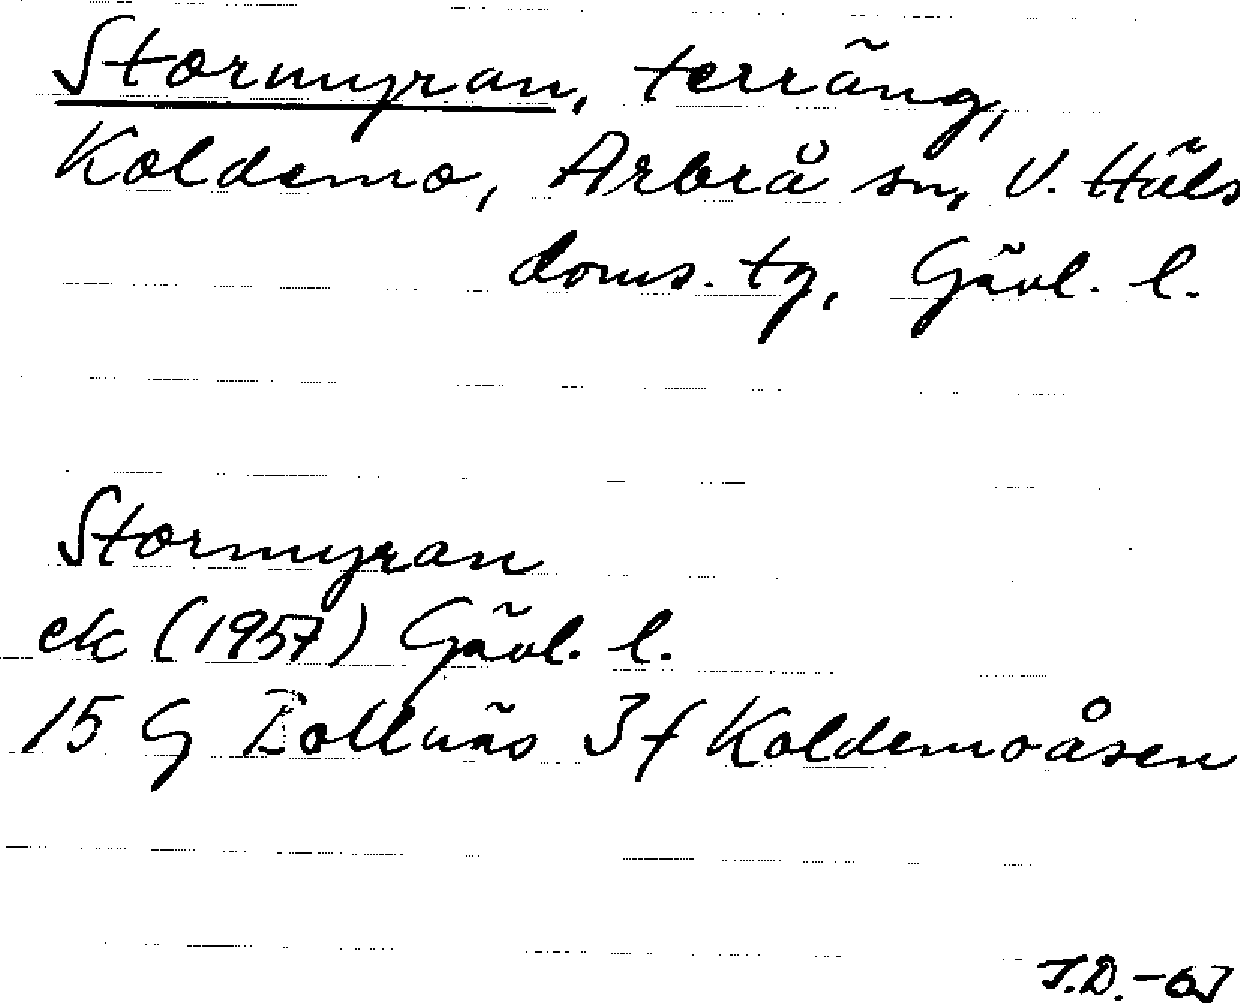 Stormyran, terräng,
Koldemo, Arbrå sn, V. Häls
doms. tg, Gävl. l.
Stormyran
ek (1957) Gävl. l.
15 G Bollnäs 3f Koldemoåsen